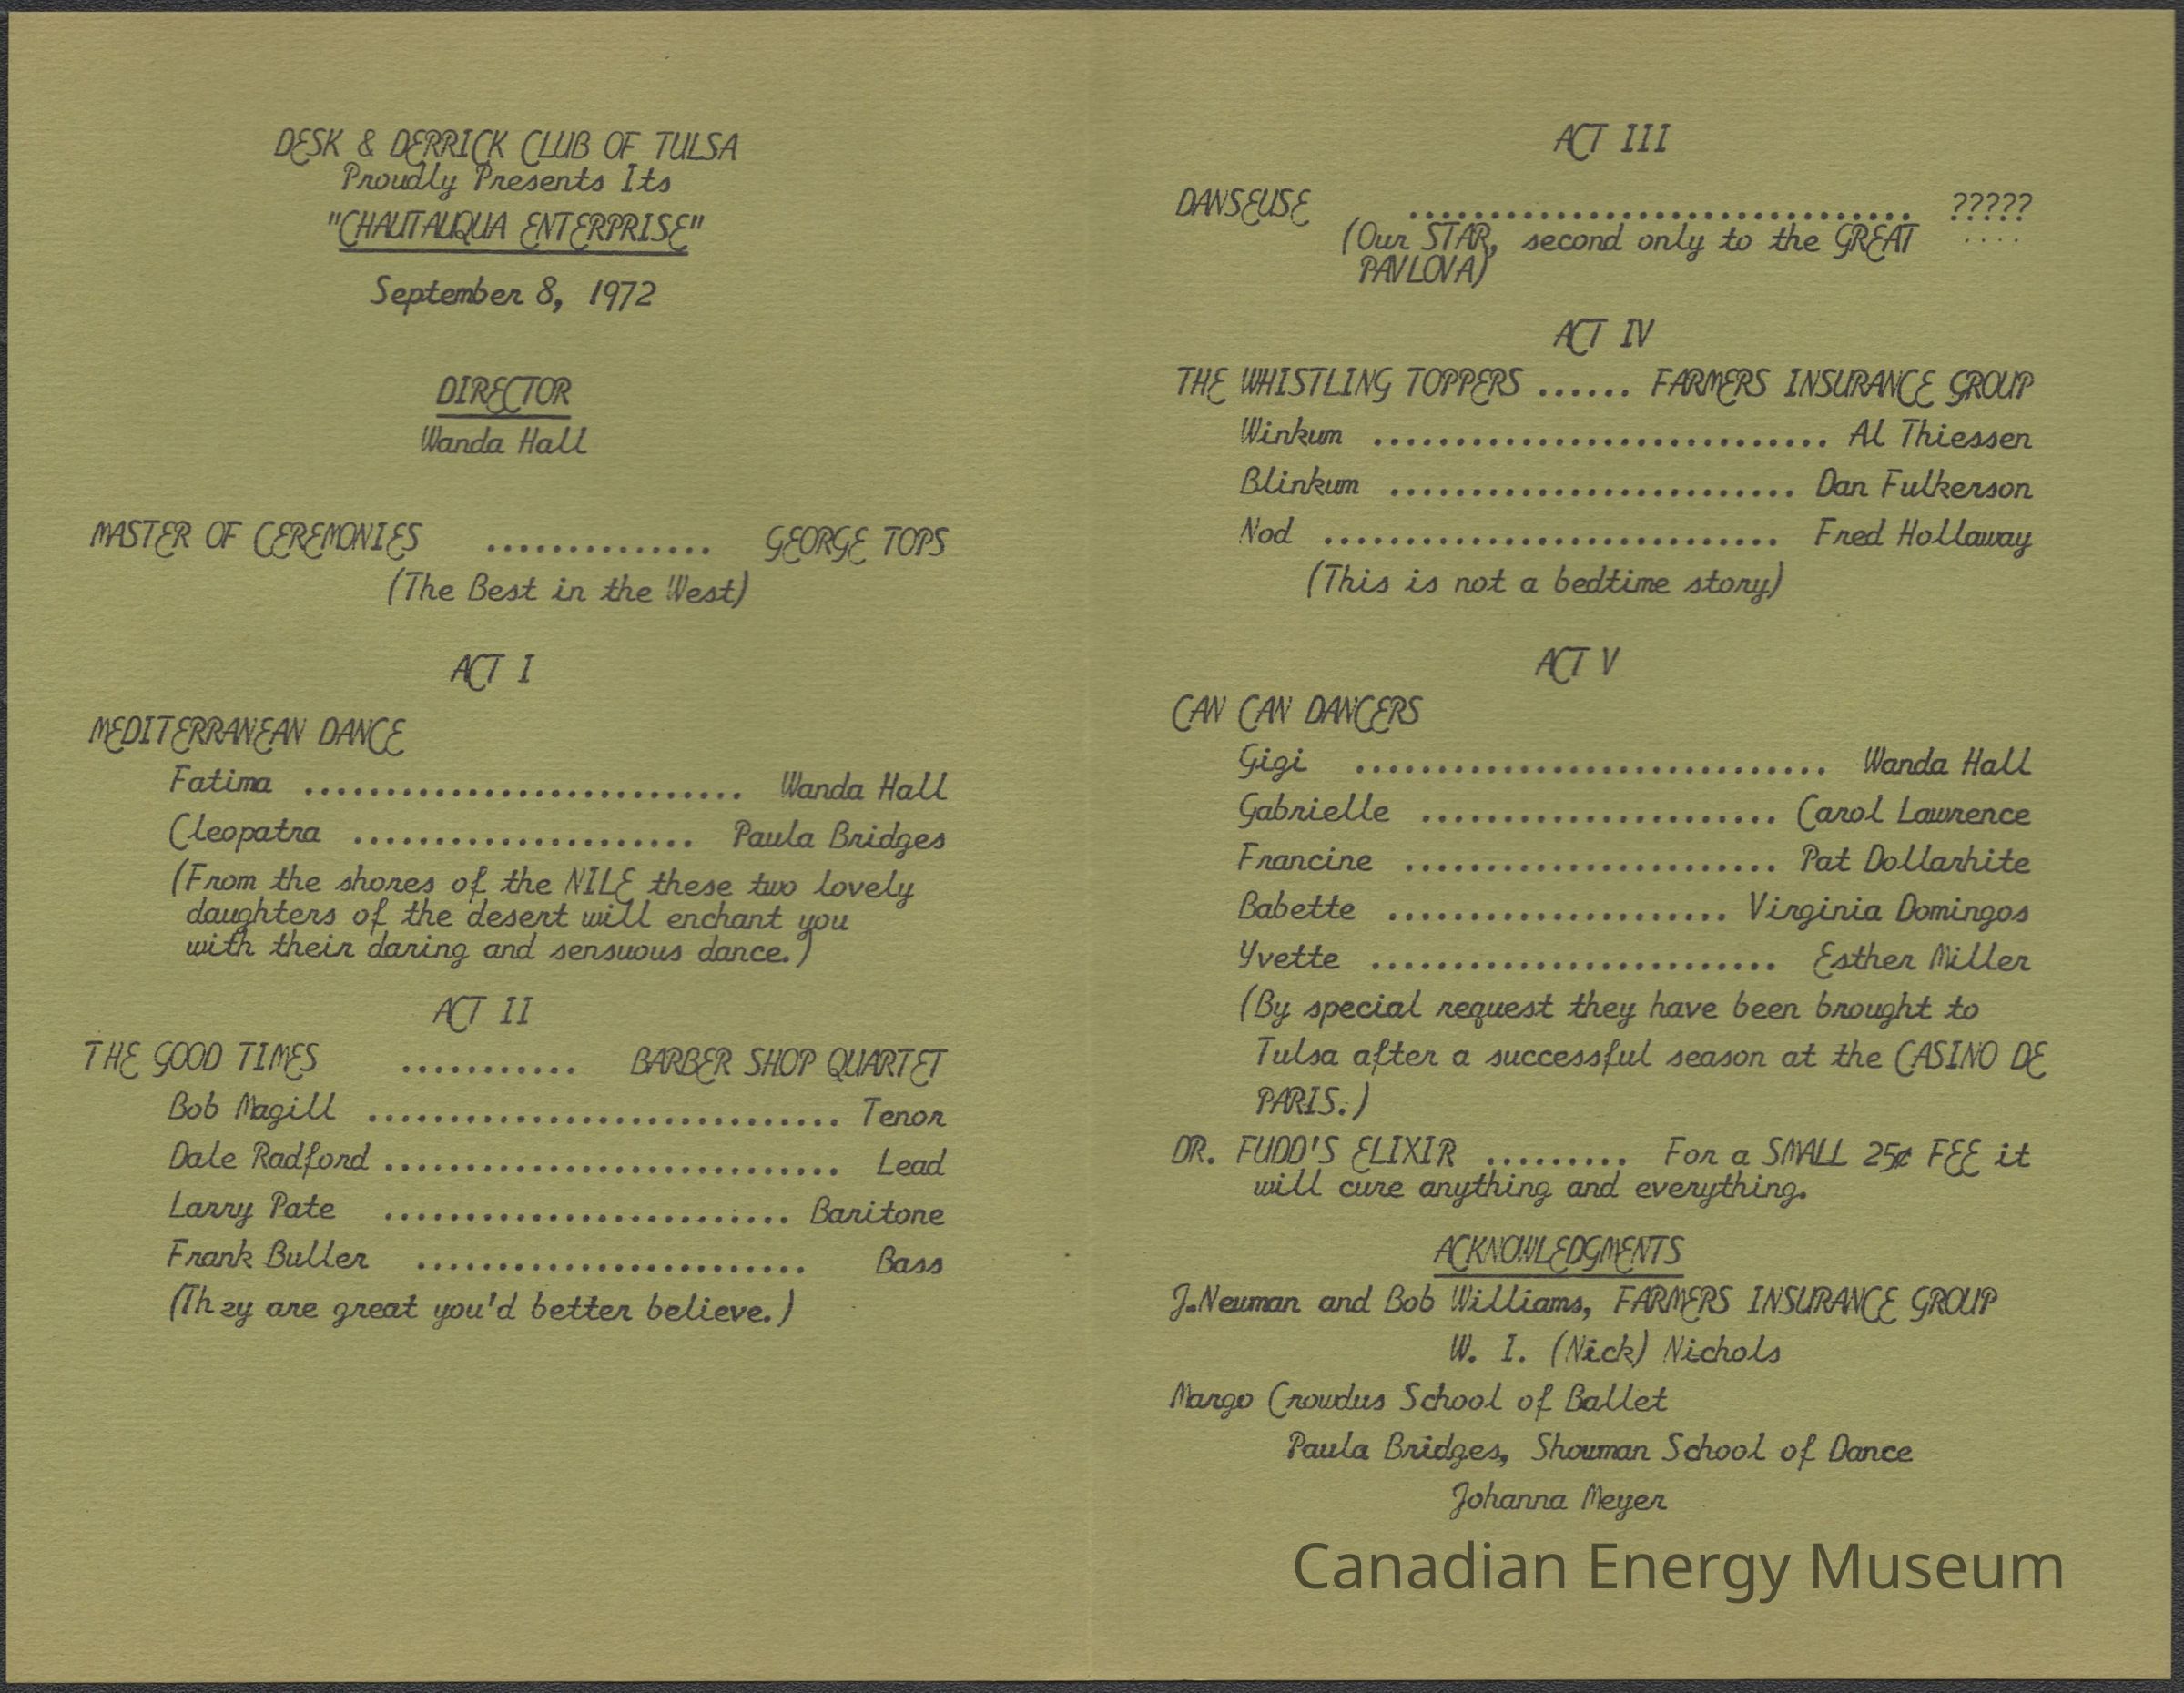 DESK & DERRICK CLUB OF TULSA
Proudly Presents Its
"CHAUTAUQUA ENTERPRISE"
September 8, 1972
DIRECTOR
Wanda Hall
MASTER OF CEREMONIES .............. GEORGE TOPS
(The Best in the West)
ACT I
MEDITERRANEAN DANCE
Fatima ........................... Wanda Hall
Cleopatra ..................... Paula Bridges
(From the shores of the NILE these two lovely
daughters of the desert will enchant you
with their daring and sensuous dance.)
ACT II
THE GOOD TIMES ........... BARBER SHOP QUARTET
Bob Magill ............................. Tenor
Dale Radford ............................ Lead
Larry Pate ......................... Baritone
Frank Buller ........................ Bass
(They are great you'd better believe.)
ACT III
DANSEUSE ............................... ?????
(Our STAR, second only to the GREAT ....
PAVLOVA)
ACT IV
THE WHISTLING TOPPERS ...... FARMERS INSURANCE GROUP
Winkum ............................ Al Thiessen
Blinkum ......................... Dan Fulkerson
Nod ............................ Fred Hollaway
(This is not a bedtime story)
ACT V
CAN CAN DANCERS
Gigi ............................. Wanda Hall
Gabrielle ...................... Carol Lawrence
Francine ....................... Pat Dollarhite
Babette ..................... Virginia Domingos
Yvette ......................... Esther Miller
(By special request they have been brought to
Tulsa after a successful season at the CASINO DE
PARIS.)
DR. FUDD'S ELIXIR ......... For a SMALL 25¢ FEE it
will cure anything and everything.
ACKNOWLEDGMENTS
J.Newman and Bob Williams, FARMERS INSURANCE GROUP
W. I. (Nick) Nichols
Margo Crowdus School of Ballet
Paula Bridges, Showman School of Dance
Johanna Meyer
Canadian Energy Museum